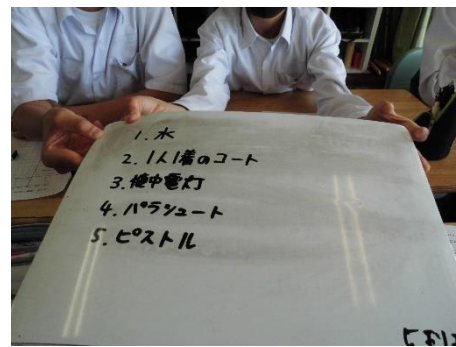 1. 水
2. 1人1着のコート
3. 懐中電灯
4. パラシュート
5. ピストル